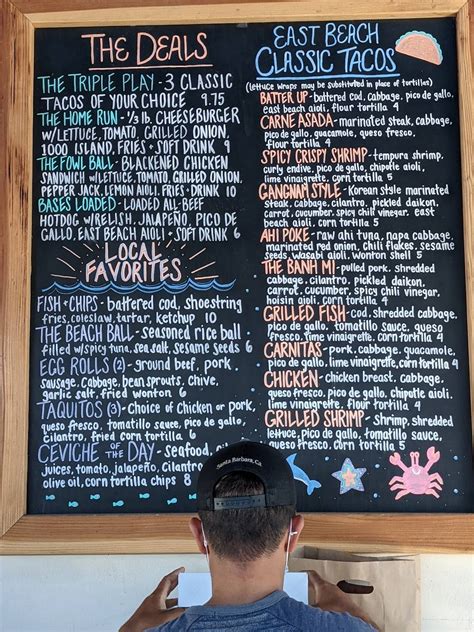 THE DEALS
THE TRIPLE PLAY - 3 CLASSIC
TACOS OF YOUR CHOICE 9.75
THE HOME RUN - 1/3 lb. CHEESEBURGER
W/LETTUCE, TOMATO, GRILLED ONION,
1000 ISLAND, FRIES + SOFT DRINK 9
THE FOWL BALL - BLACKENED CHICKEN
SANDWICH W/LETTUCE, TOMATO, GRILLED ONION,
PEPPER JACK, LEMON AIOLI, FRIES + DRINK 10
BASES LOADED - LOADED ALL-BEEF
HOTDOG W/RELISH, JALAPEÑO, PICO DE
GALLO, EAST BEACH AIOLI + SOFT DRINK 6
LOCAL
FAVORITES
FISH + CHIPS - battered cod, shoestring
fries, coleslaw, tartar, ketchup 10
THE BEACH BALL - seasoned rice ball
filled w/spicy tuna, sea salt, sesame seeds 6
EGG ROLLS (2) - ground beef, pork
sausage, cabbage, bean sprouts, chive,
garlic salt, fried wonton 6
TAQUITOS (3) - choice of chicken or pork,
queso fresco, tomatillo sauce, pico de gallo,
cilantro, fried corn tortilla 6
CEVICHE OF THE DAY - seafood,
juices, tomato, jalapeño, cilantro
olive oil, corn tortilla chips 8
EAST BEACH
CLASSIC TACOS
(lettuce wraps may be substituted in place of tortillas)
BATTER UP - battered cod, cabbage, pico de gallo,
east beach aioli, flour tortilla 4
CARNE ASADA - marinated steak, cabbage,
pico de gallo, guacamole, queso fresco,
flour tortilla 4
SPICY CRISPY SHRIMP - tempura shrimp,
curly endive, pico de gallo, chipotle aioli,
lime vinaigrette, corn tortilla 5
GANGNAM STYLE - Korean style marinated
steak, cabbage, cilantro, pickled daikon,
carrot, cucumber, spicy chili vinegar, east
beach aioli, corn tortilla 5
AHI POKE - raw ahi tuna, napa cabbage,
marinated red onion, chili flakes, sesame
seeds, wasabi aioli, wonton shell 5
THE BANH MI - pulled pork, shredded
cabbage, cilantro, pickled daikon,
carrot, cucumber, spicy chili vinegar,
hoisin aioli, corn tortilla 4
GRILLED FISH - cod, shredded cabbage,
pico de gallo, tomatillo sauce, queso
fresco, lime vinaigrette, corn tortilla 4
CARNITAS - pork, cabbage, guacamole,
pico de gallo, lime vinaigrette, corn tortilla 4
CHICKEN - chicken breast, cabbage,
queso fresco, pico de gallo, chipotle aioli,
lime vinaigrette, flour tortilla 4
GRILLED SHRIMP - Shrimp, shredded
lettuce, pico de gallo, tomatillo sauce,
queso fresco, lime vinaigrette, corn tortilla 5
Santa Barbara, CA